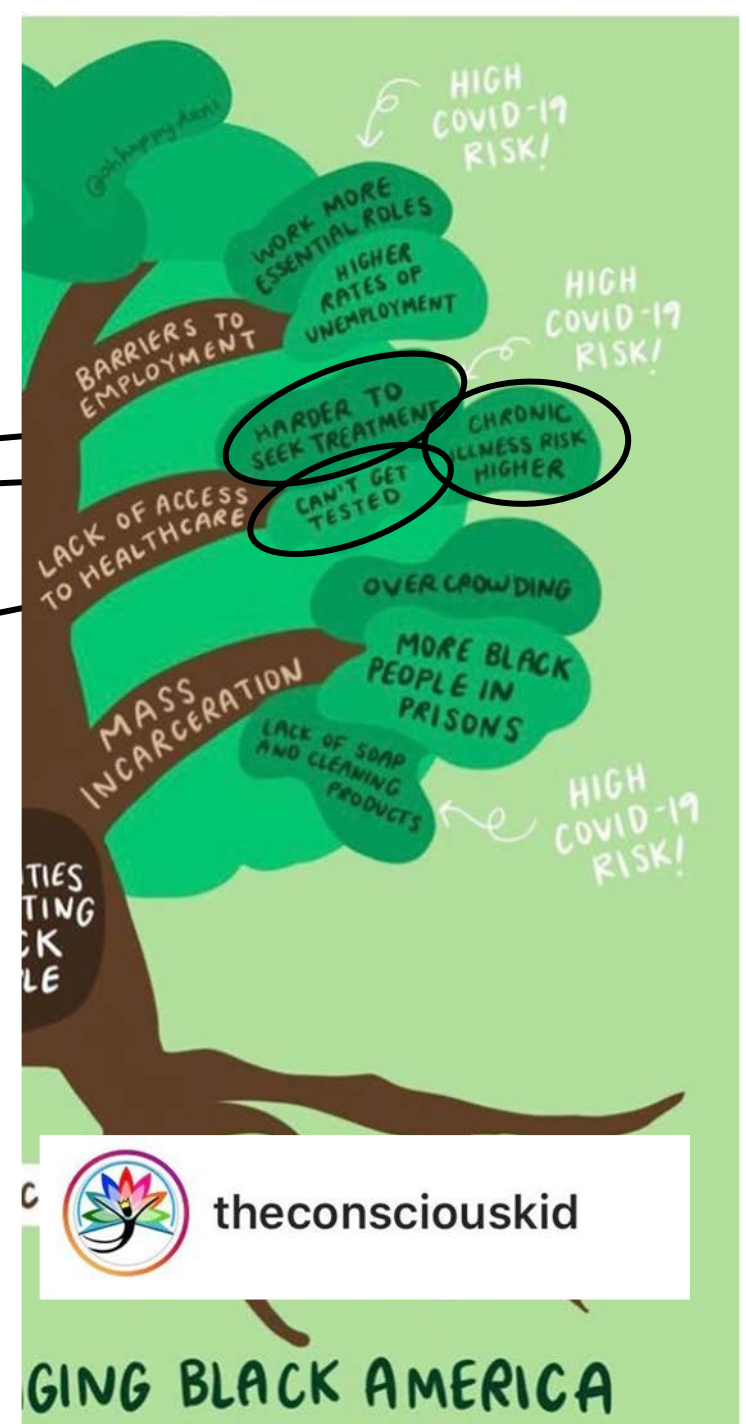 @ohhappydani
HIGH
COVID-19
RISK!
WORK MORE
ESSENTIAL ROLES
HIGHER
RATES OF
UNEMPLOYMENT
BARRIERS TO
EMPLOYMENT
HIGH
COVID-19
RISK!
HARDER TO
SEEK TREATMENT
CHRONIC
ILLNESS RISK
HIGHER
CAN'T GET
TESTED
LACK OF ACCESS
TO HEALTHCARE
OVERCROWDING
MORE BLACK
PEOPLE IN
PRISONS
MASS
INCARCERATION
LACK OF SOAP
AND CLEANING
PRODUCTS
HIGH
COVID-19
RISK!
TIES
TING
CK
LE
C
theconsciouskid
GING BLACK AMERICA